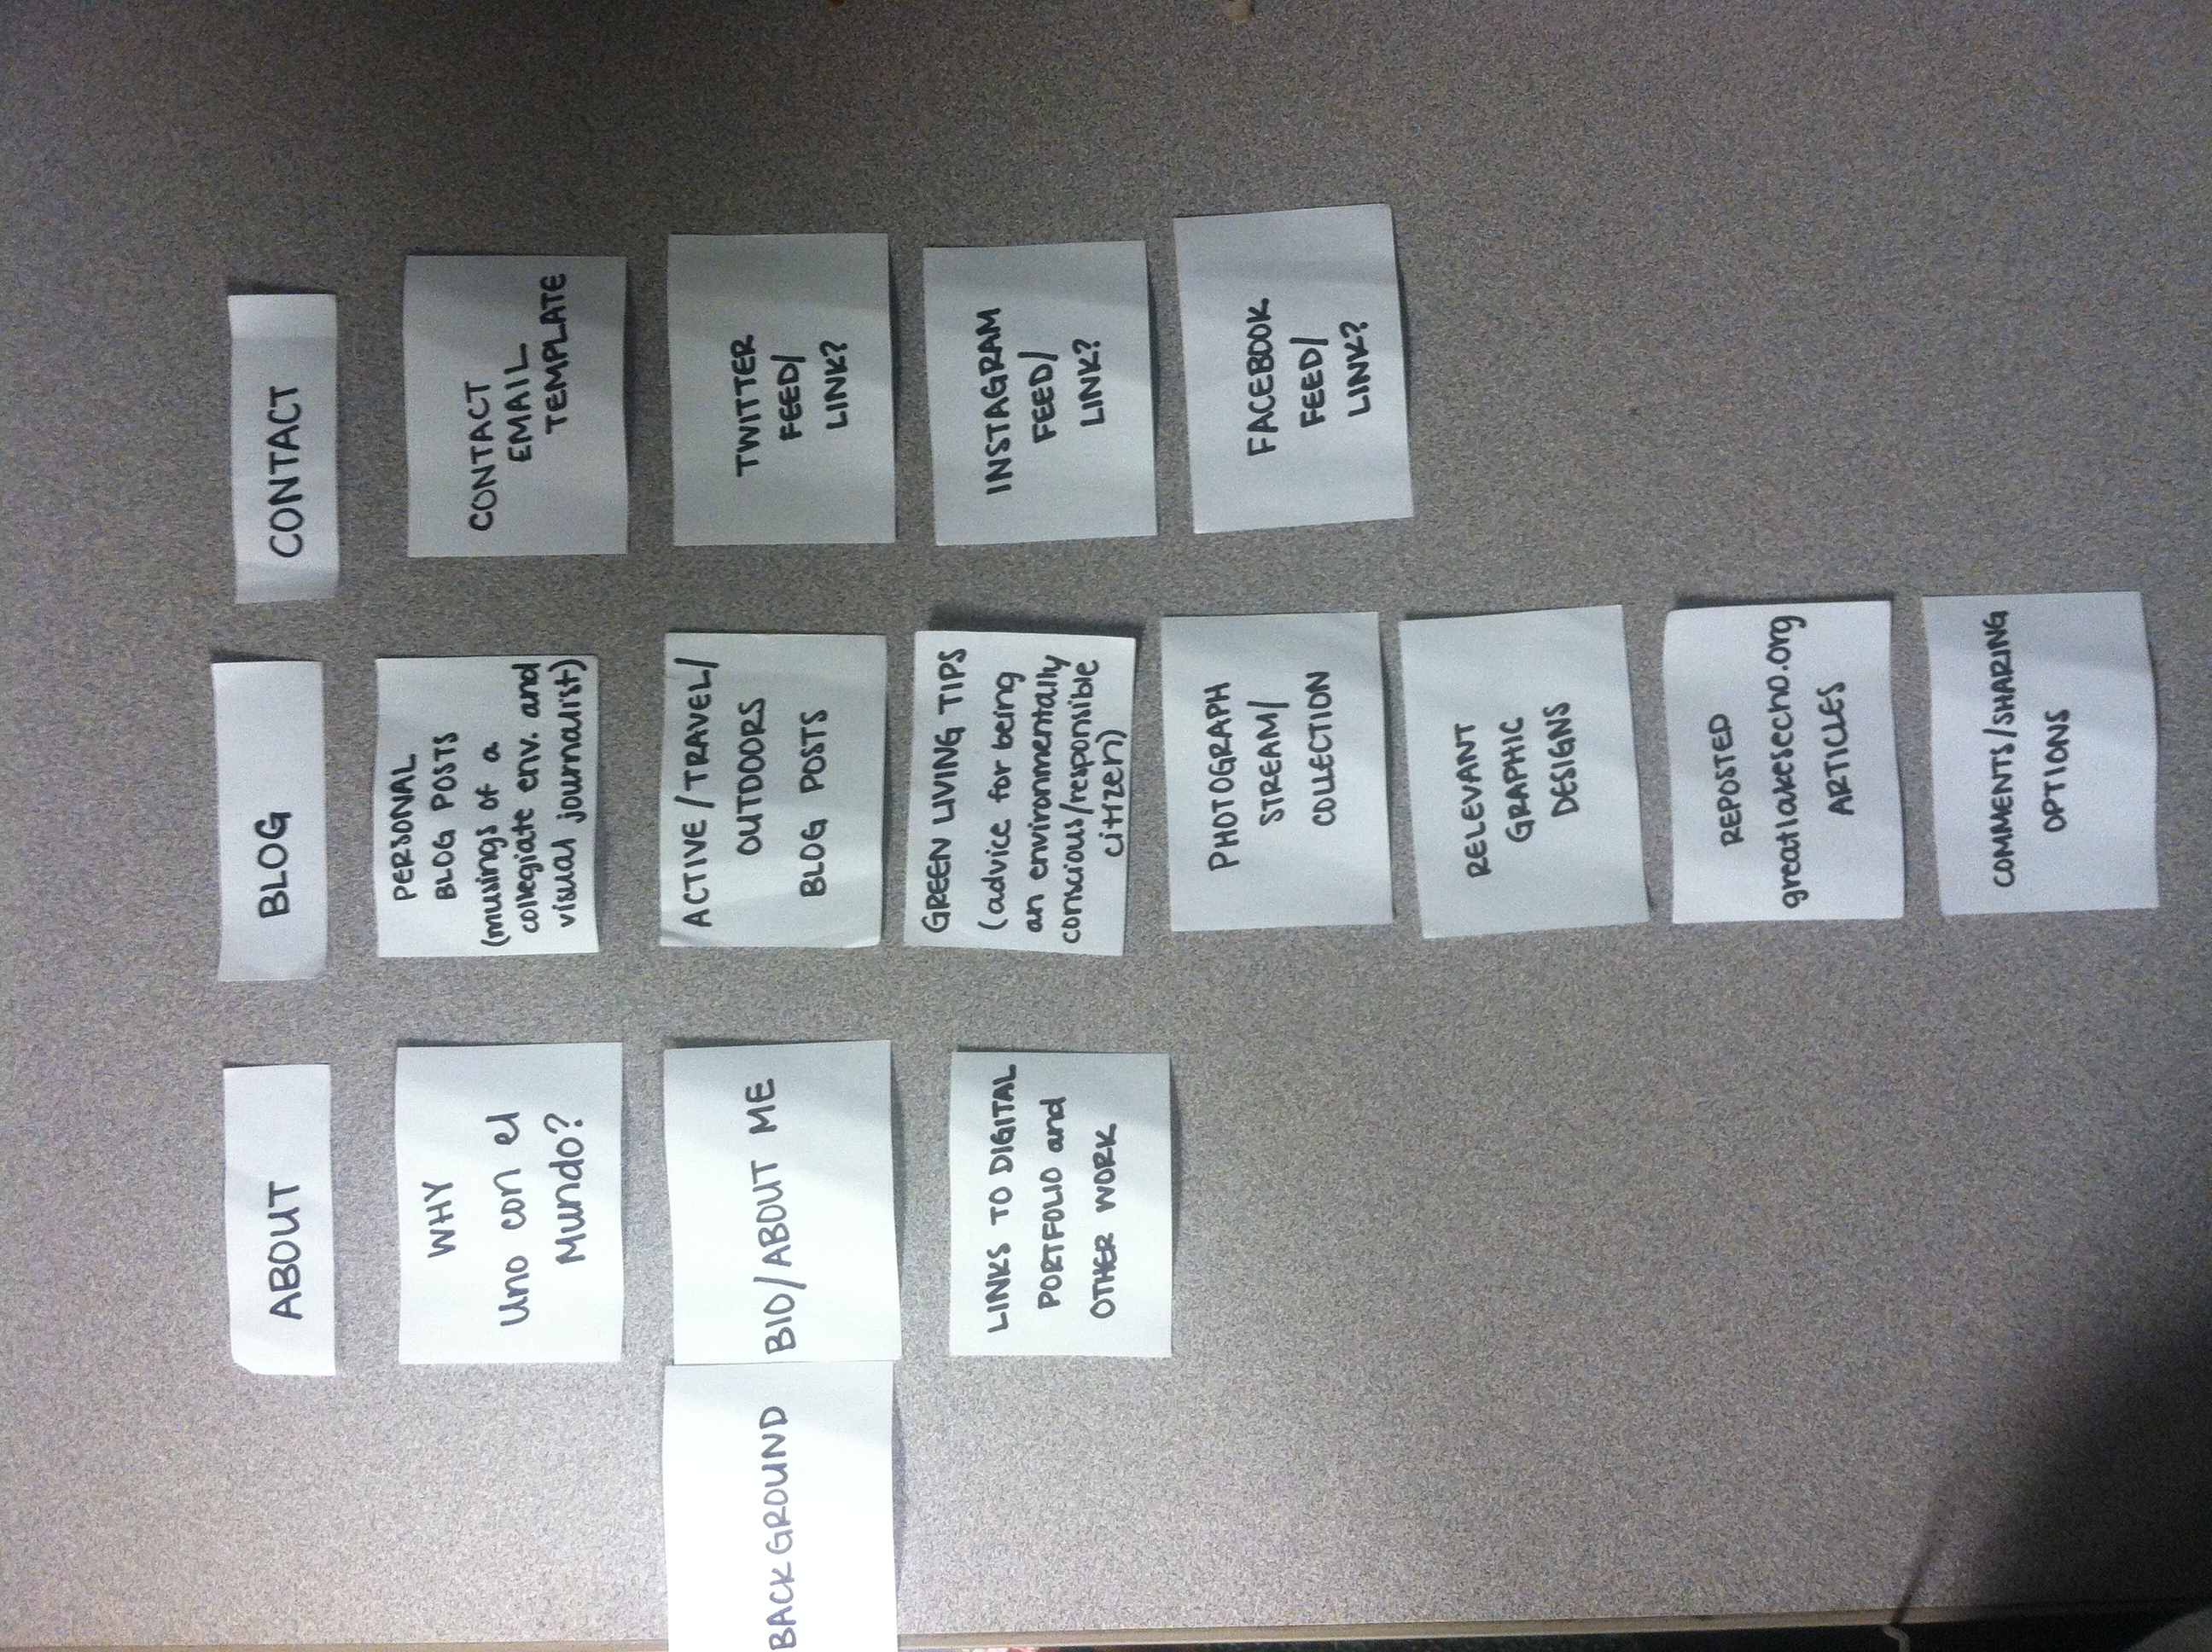 ABOUT
WHY
Uno con el
Mundo?
BACKGROUND
BIO/ABOUT ME
LINKS TO DIGITAL
PORTFOLIO and
OTHER WORK
BLOG
PERSONAL
BLOG POSTS
(musings of a
collegiate env. and
visual journalist)
ACTIVE/TRAVEL/
OUTDOORS
BLOG POSTS
GREEN LIVING TIPS
(advice for being
an environmentally
conscious/responsible
citizen)
PHOTOGRAPH
STREAM/
COLLECTION
RELEVANT
GRAPHIC
DESIGNS
REPOSTED
greatlakesecho.org
ARTICLES
COMMENTS/SHARING
OPTIONS
CONTACT
CONTACT
EMAIL
TEMPLATE
TWITTER
FEED/
LINK?
INSTAGRAM
FEED/
LINK?
FACEBOOK
FEED/
LINK?